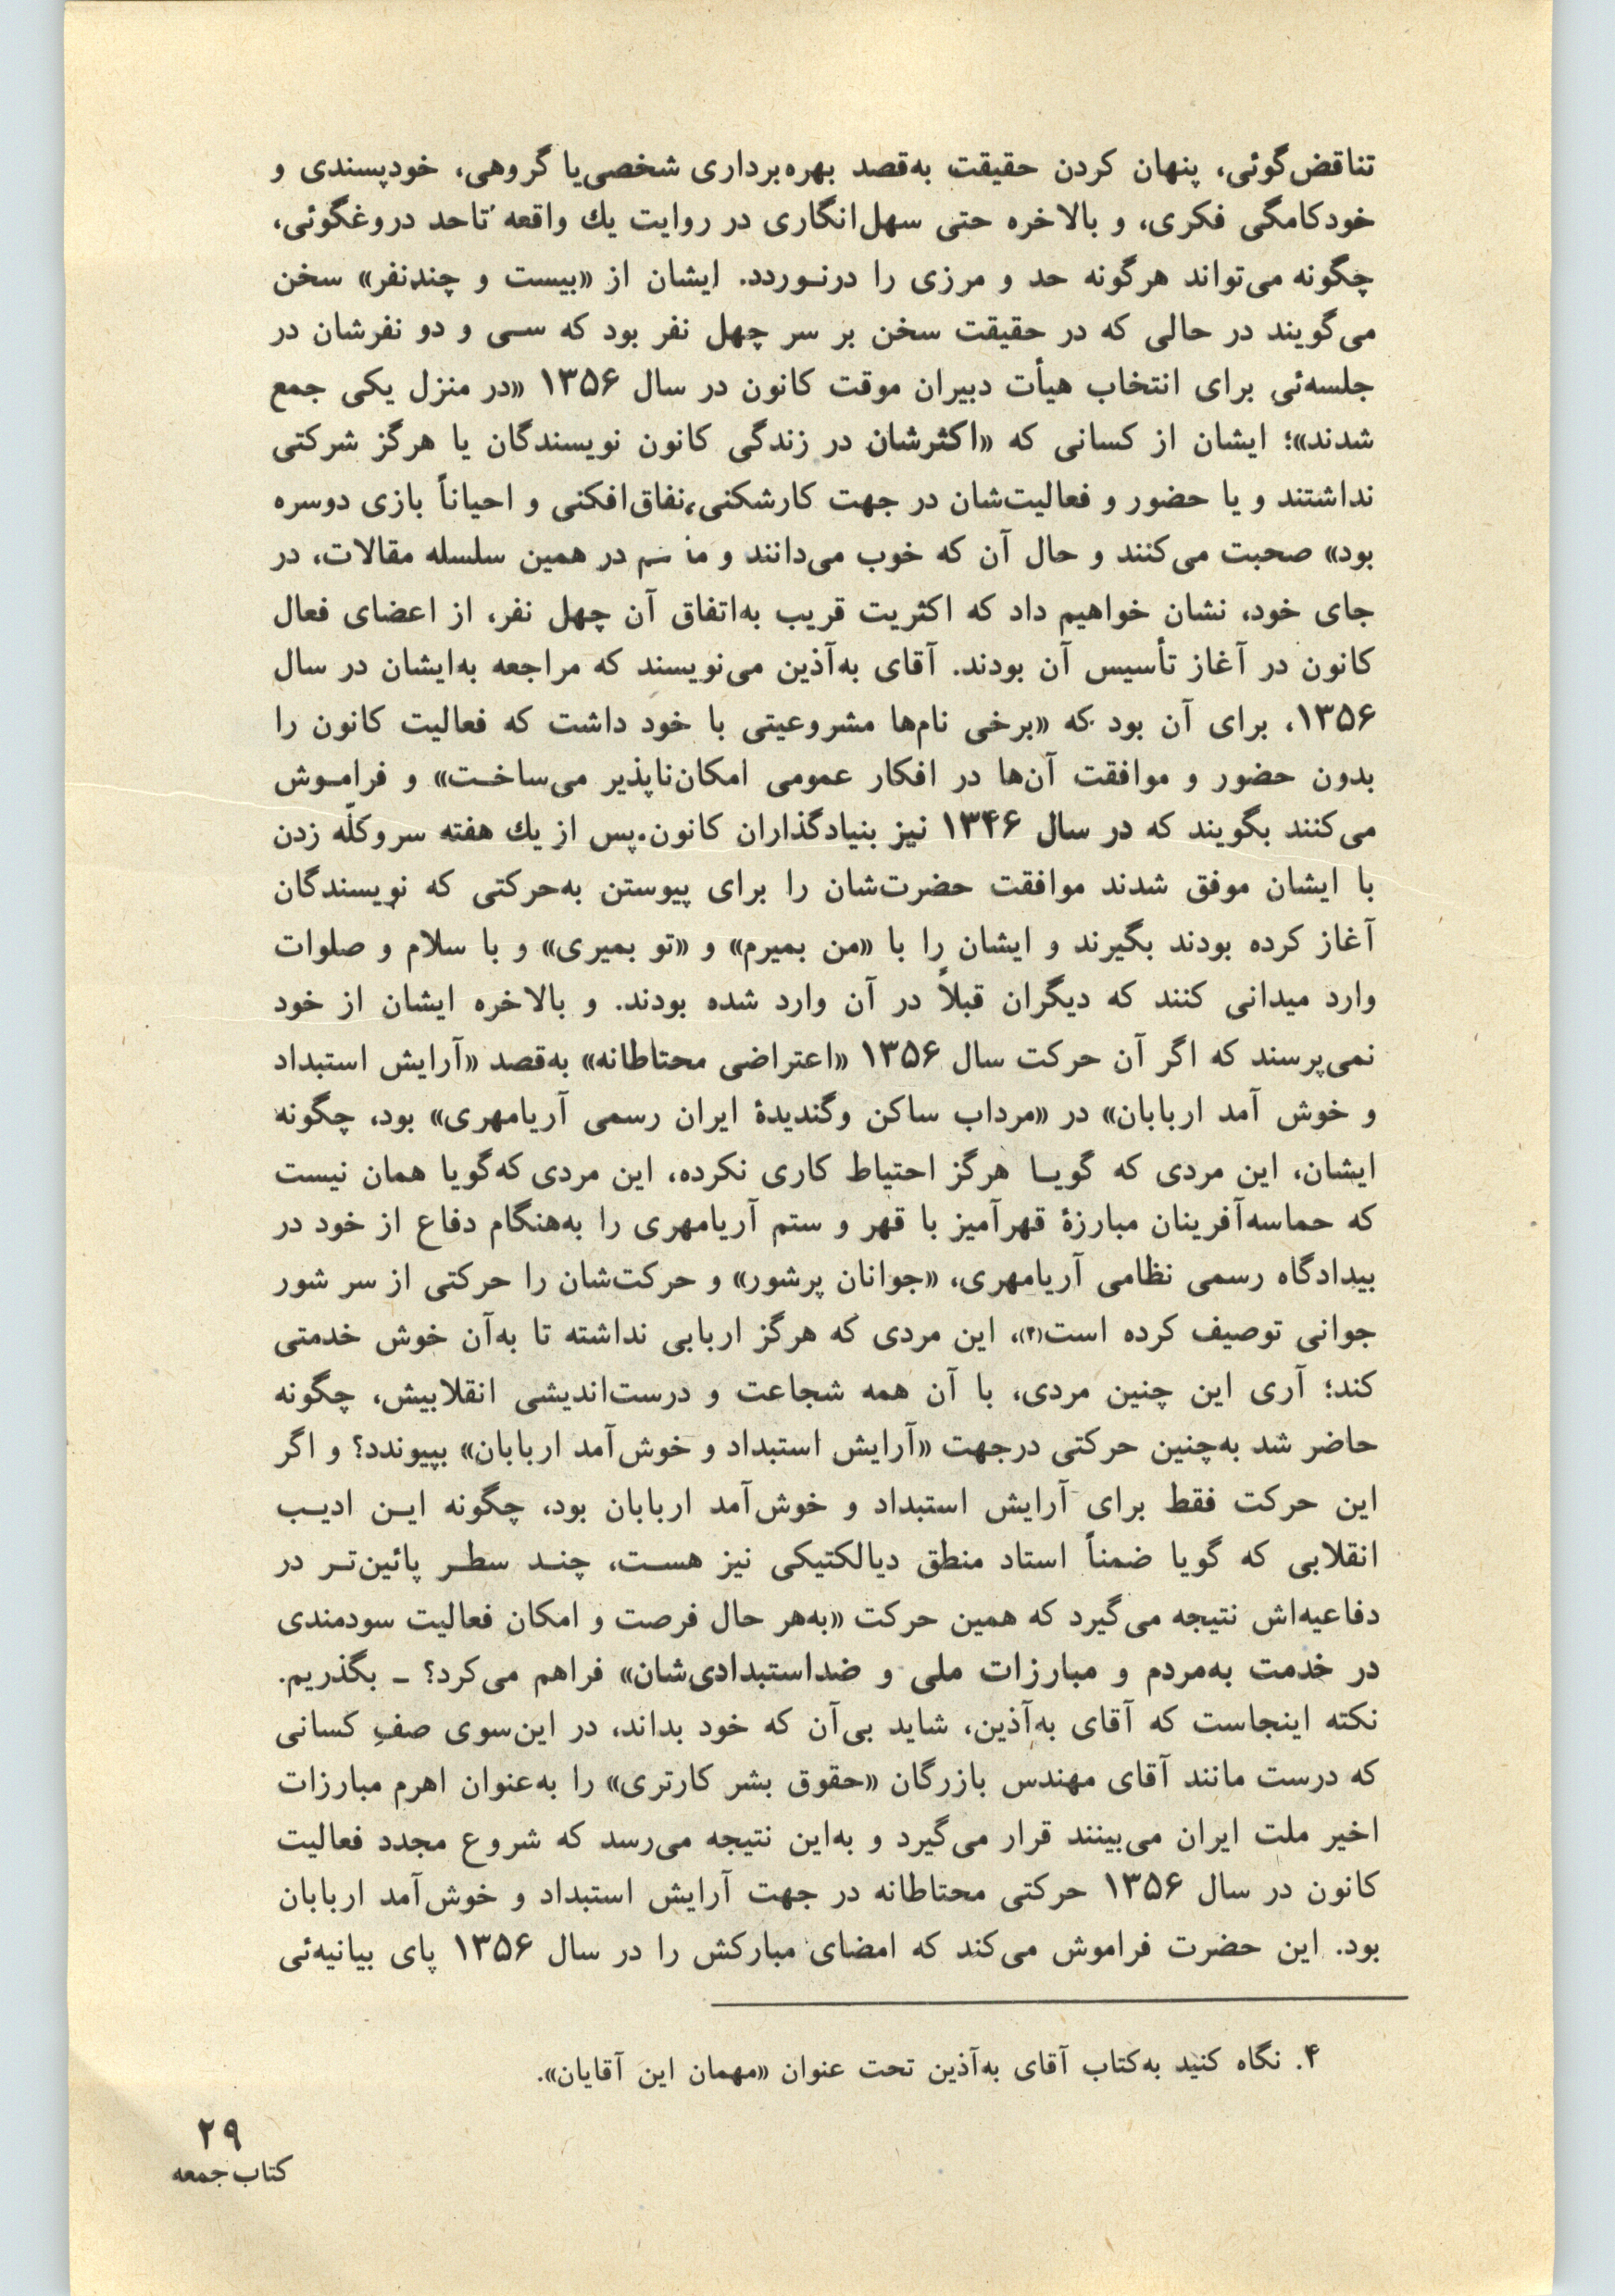 تناقض‌گوئی، پنهان کردن حقیقت به‌قصد بهره‌برداری شخصی‌یا گروهی، خودپسندی و
خودکامگی فکری، و بالاخره حتی سهل‌انگاری در روایت یك واقعه تاحد دروغگوئی،
چگونه می‌تواند هرگونه حد و مرزی را درنـوردد. ایشان از «بیست و چندنفر» سخن
می‌گویند در حالی که در حقیقت سخن بر سر چهل نفر بود که سـی و دو نفرشان در
جلسه‌ئی برای انتخاب هیأت دبیران موقت کانون در سال ۱۳۵۶ «در منزل یکی جمع
شدند»؛ ایشان از کسانی که «اکثرشان در زندگی کانون نویسندگان یا هرگز شرکتی
نداشتند و یا حضور و فعالیت‌شان در جهت کارشکنی، نفاق‌افکنی و احیاناً بازی دوسره
بود» صحبت می‌کنند و حال آن که خوب می‌دانند و در همین سلسله مقالات، در
جای خود، نشان خواهیم داد که اکثریت قریب به‌اتفاق آن چهل نفر، از اعضای فعال
کانون در آغاز تأسیس آن بودند. آقای به‌آذین می‌نویسند که مراجعه به‌ایشان در سال
۱۳۵۶، برای آن بود که «برخی نام‌ها مشروعیتی با خود داشت که فعالیت کانون را
بدون حضور و موافقت آن‌ها در افکار عمومی امکان‌ناپذیر می‌ساخـت» و فرامـوش
می‌کنند بگویند که در سال ۱۳۴۶ نیز بنیادگذاران کانون.پس از یك هفته سروکلّه زدن
با ایشان موفق شدند موافقت حضرت‌شان را برای پیوستن به‌حرکتی که نویسندگان
آغاز کرده بودند بگیرند و ایشان را با «من بمیرم» و «تو بمیری» و با سلام و صلوات
وارد میدانی کنند که دیگران قبلاً در آن وارد شده بودند. و بالاخره ایشان از خود
نمی‌پرسند که اگر آن حرکت سال ۱۳۵۶ «اعتراضی محتاطانه» به‌قصد «آرایش استبداد
و خوش آمد اربابان» در «مرداب ساکن وگندیدهٔ ایران رسمی آریامهری» بود، چگونه
ایشان، این مردی که گویـا هرگز احتیاط کاری نکرده، این مردی که‌گویا همان نیست
که حماسه‌آفرینان مبارزهٔ قهرآمیز با قهر و ستم آریامهری را به‌هنگام دفاع از خود در
بیدادگاه رسمی نظامی آریامهری، «جوانان پرشور» و حرکت‌شان را حرکتی از سر شور
جوانی توصیف کرده است(۴)، این مردی که هرگز اربابی نداشته تا به‌آن خوش خدمتی
کند؛ آری این چنین مردی، با آن همه شجاعت و درست‌اندیشی انقلابیش، چگونه
حاضر شد به‌چنین حرکتی درجهت «آرایش استبداد و خوش‌آمد اربابان» بپیوندد؟ و اگر
این حرکت فقط برای آرایش استبداد و خوش‌آمد اربابان بود، چگونه ایـن ادیـب
انقلابی که گویا ضمناً استاد منطق دیالکتیکی نیز هسـت، چنـد سطـر پائین‌تـر در
دفاعیه‌اش نتیجه می‌گیرد که همین حرکت «به‌هر حال فرصت و امکان فعالیت سودمندی
در خدمت به‌مردم و مبارزات ملی و ضداستبدادی‌شان» فراهم می‌کرد؟ ـ بگذریم.
نکته اینجاست که آقای به‌آذین، شاید بی‌آن که خود بداند، در این‌سوی صفِ کسانی
که درست مانند آقای مهندس بازرگان «حقوق بشر کارتری» را به‌عنوان اهرم مبارزات
اخیر ملت ایران می‌بینند قرار می‌گیرد و به‌این نتیجه می‌رسد که شروع مجدد فعالیت
کانون در سال ۱۳۵۶ حرکتی محتاطانه در جهت آرایش استبداد و خوش‌آمد اربابان
بود. این حضرت فراموش می‌کند که امضای مبارکش را در سال ۱۳۵۶ پای بیانیه‌ئی
۴. نگاه کنید به‌کتاب آقای به‌آذین تحت عنوان «مهمان این آقایان».
۲۹
کتاب جمعه